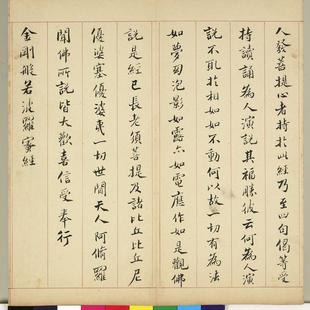 人發菩提心者持於此經乃至四句偈等受
持讀誦為人演說其福勝彼云何為人演
說不取於相如如不動何以故一切有為法
如夢幻泡影如露亦如電應作如是觀佛
說是經已長老須菩提及諸比丘比丘尼
優婆塞優婆夷一切世間天人阿脩羅
聞佛所說皆大歡喜信受奉行
金剛般若波羅蜜經